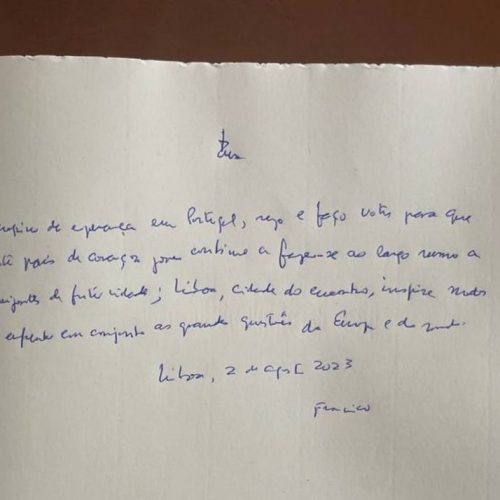 de esperança em Portugal, rezo e faço votos para que
país de coração jovem continue a fazer-se ao largo rumo a
de fraternidade; Lisboa, cidade do encontro, inspire modos
em conjunto as grandes questões da Europa e do mundo.
Lisboa, 2 de agosto 2023
Francisco